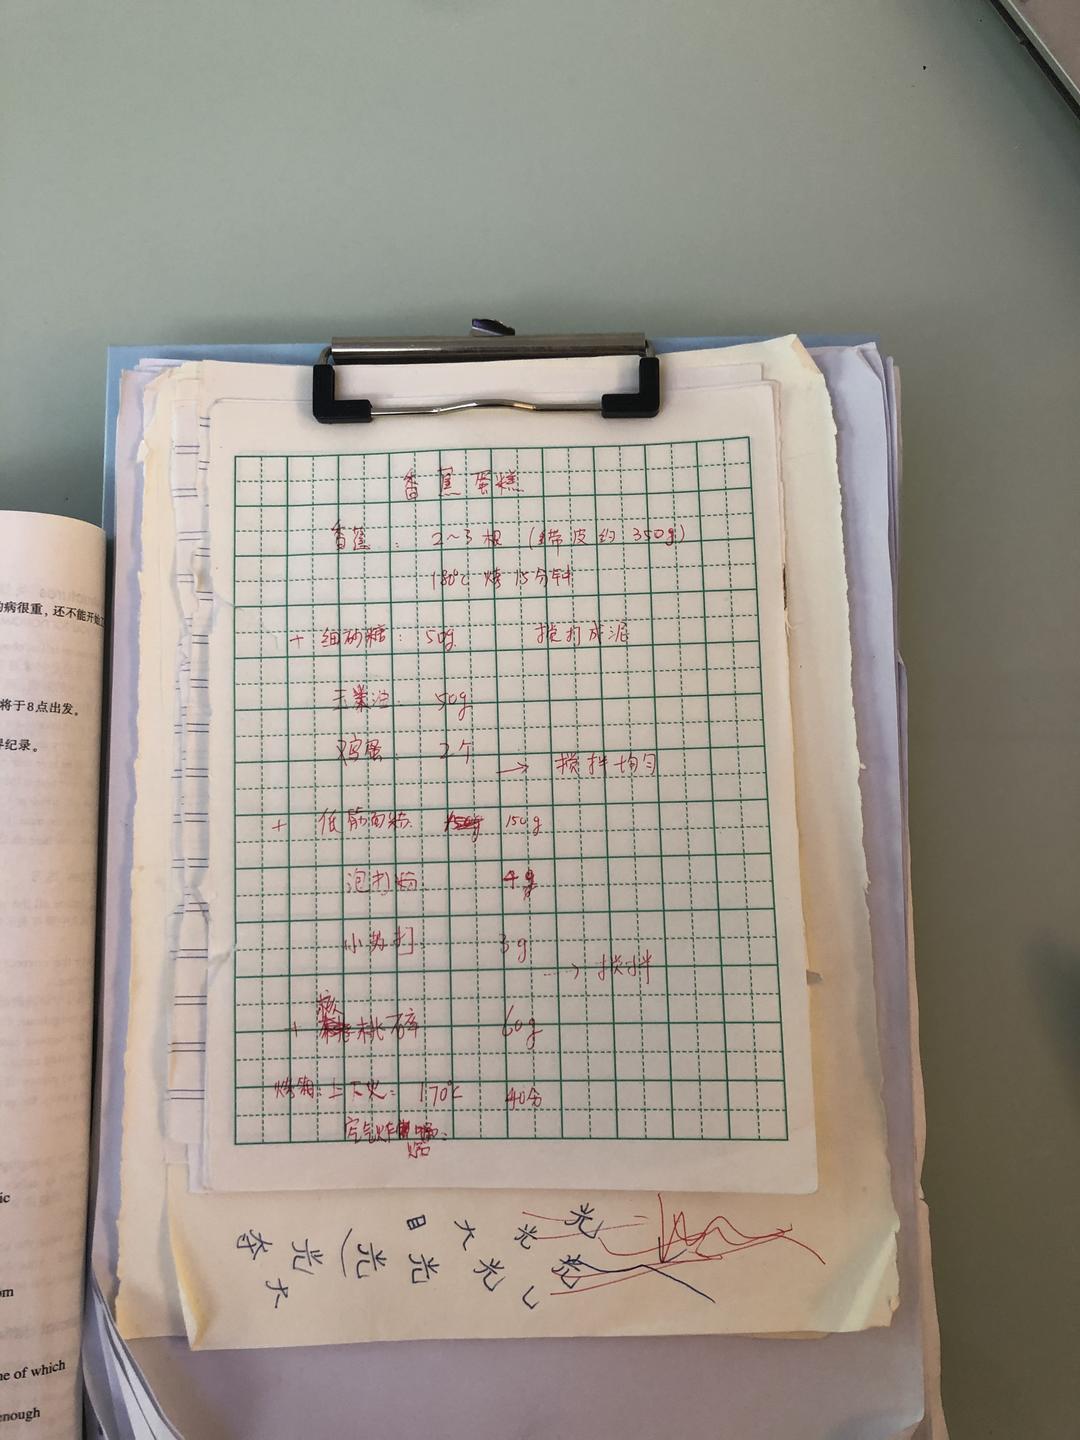 香蕉蛋糕
香蕉： 2~3根 (带皮约350g)
180℃ 烤15分钟
+ 细砂糖： 50g 搅打成泥
玉米油： 50g
鸡蛋： 2个
→ 搅拌均匀
+ 低筋面粉 150g
泡打粉 4g
小苏打 3g
→ 搅拌
+ 核桃碎 60g
烤箱：上下火： 170℃ 40分
空气炸锅：
的病很重，还不能开始工
将于8点出发。
纪录。
ne of which
enough
光
日 大 光
夺 光 光 光 光
大